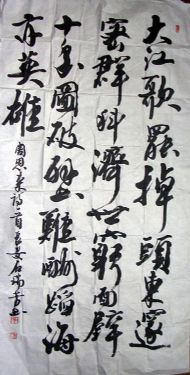 大江歌罷掉頭東邃
密群科濟世窮面壁
十年圖破壁難酬蹈海
亦英雄
周恩来詩一首